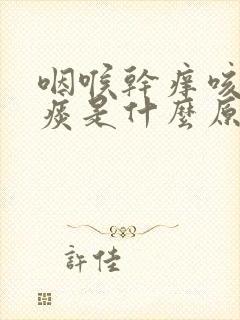 咽喉幹癢咳
痰是什麼原
許佳